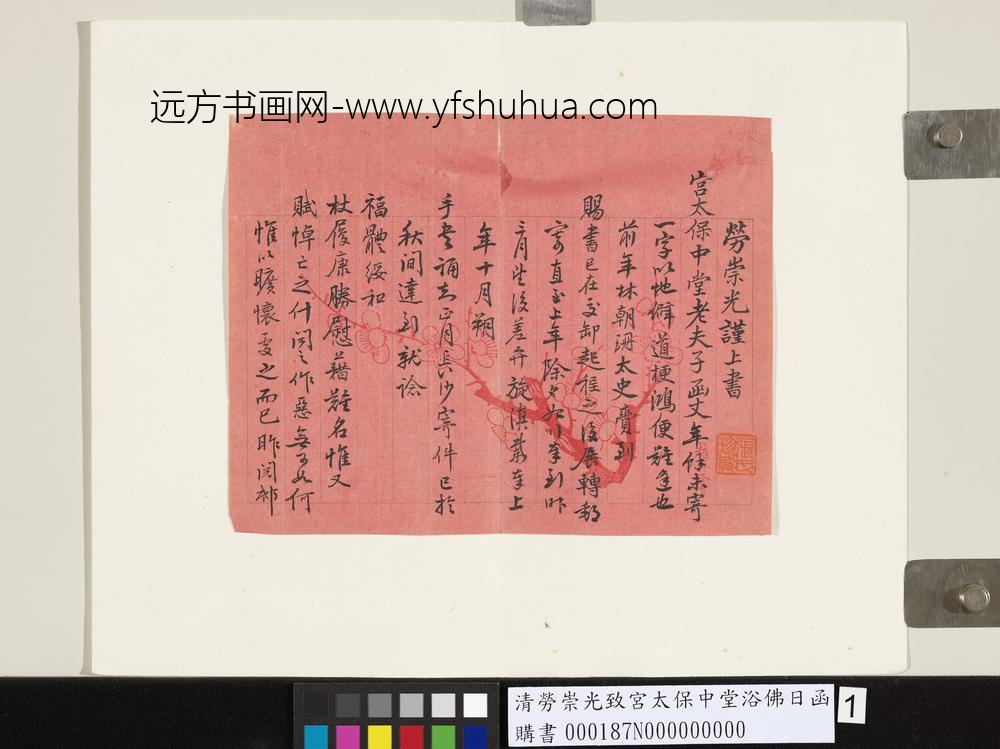 远方书画网-www.yfshuhua.com
勞崇光謹上書
宮太保中堂老夫子函丈年餘未寄
一字以地僻道梗鴻便難逢也
前年林朝珊太史賫到
賜書已在交卸起程之後展轉郵
寄直至上年除夕始行奉到昨
三月望後差弁旋滇幷奉上
年十月朔
手書誦悉正月長沙寄件已於
秋间達到就諗
福體綏和
杖履康勝慰藉難名惟又
賦悼亡之什闻之作惡無可如何
惟以曠懷處之而已昨閱邸
清勞崇光致宮太保中堂浴佛日函
購書 000187N000000000
1